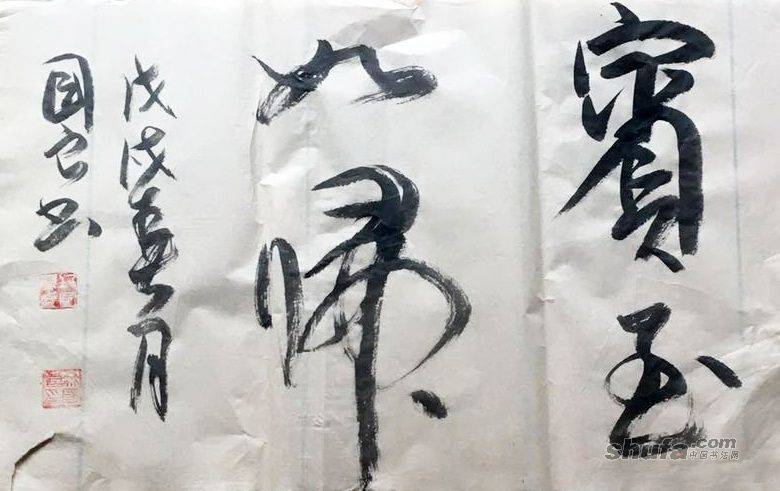 賓至
如歸
戊戌春月
国 书
shufa.com
中国书法网